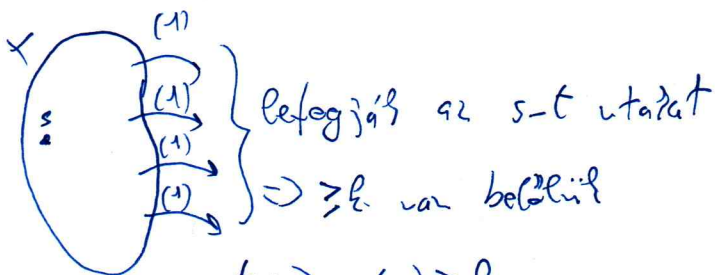 (1)
X
(1)
s
(1)
(1)
lefogják az s-t utakat
=> ≥k van belőlük